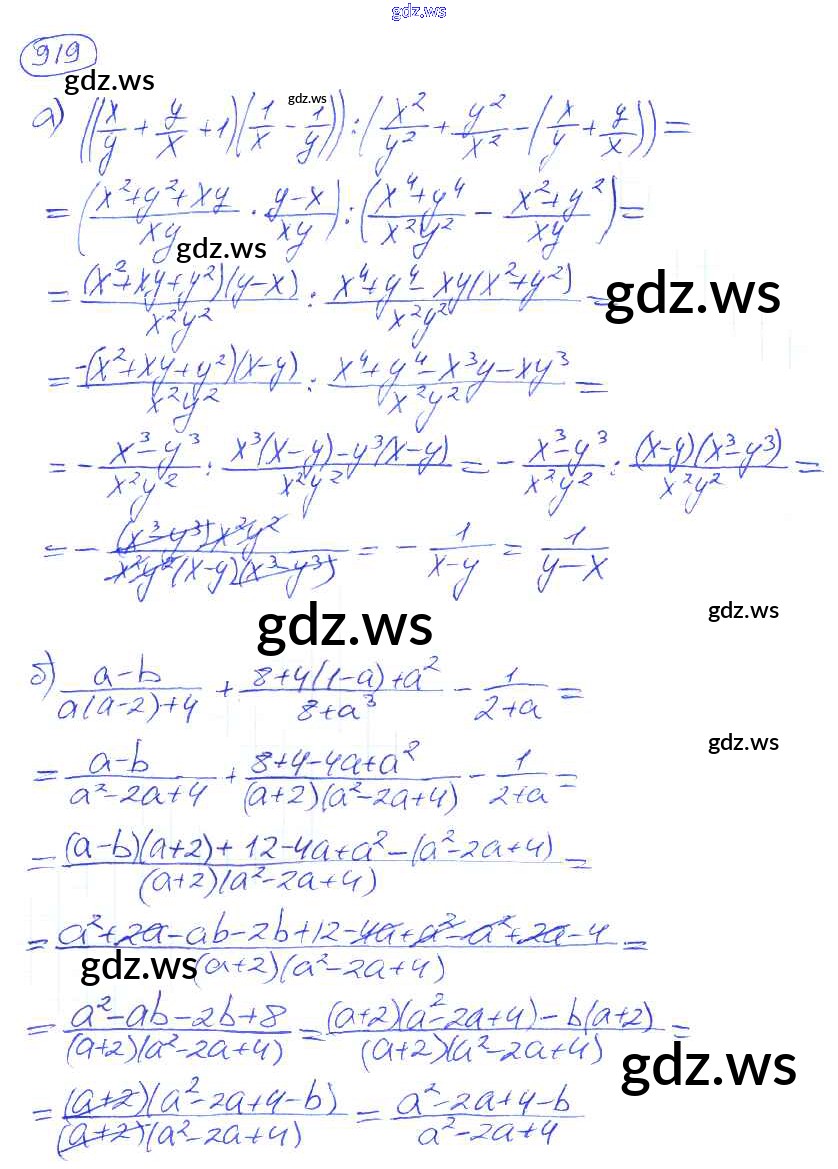 gdz.ws
919
gdz.ws
gdz.ws
а) ((x/y + y/x + 1)(1/x - 1/y)) : (x²/y² + y²/x² - (x/y + y/x)) =
= ((x²+y²+xy)/xy · (y-x)/xy) : ((x⁴+y⁴)/x²y² - (x²+y²)/xy) =
gdz.ws
= (x²+xy+y²)(y-x)/x²y² : (x⁴+y⁴-xy(x²+y²))/x²y² =
gdz.ws
= -(x²+xy+y²)(x-y)/x²y² : (x⁴+y⁴-x³y-xy³)/x²y² =
= - (x³-y³)/x²y² : (x³(x-y)-y³(x-y))/x²y² = - (x³-y³)/x²y² : (x-y)(x³-y³)/x²y² =
= - (x³-y³)x²y²/x²y²(x-y)(x³-y³) = - 1/(x-y) = 1/(y-x)
gdz.ws
gdz.ws
б) (a-b)/(a(a-2)+4) + (8+4(1-a)+a²)/(8+a³) - 1/(2+a) =
gdz.ws
= (a-b)/(a²-2a+4) + (8+4-4a+a²)/((a+2)(a²-2a+4)) - 1/(2+a) =
= ((a-b)(a+2)+12-4a+a²-(a²-2a+4))/((a+2)(a²-2a+4)) =
= (a²+2a-ab-2b+12-4a+a²-a²+2a-4)/((a+2)(a²-2a+4)) =
gdz.ws
= (a²-ab-2b+8)/((a+2)(a²-2a+4)) = ((a+2)(a²-2a+4)-b(a+2))/((a+2)(a²-2a+4)) =
gdz.ws
= (a+2)(a²-2a+4-b)/((a+2)(a²-2a+4)) = (a²-2a+4-b)/(a²-2a+4)